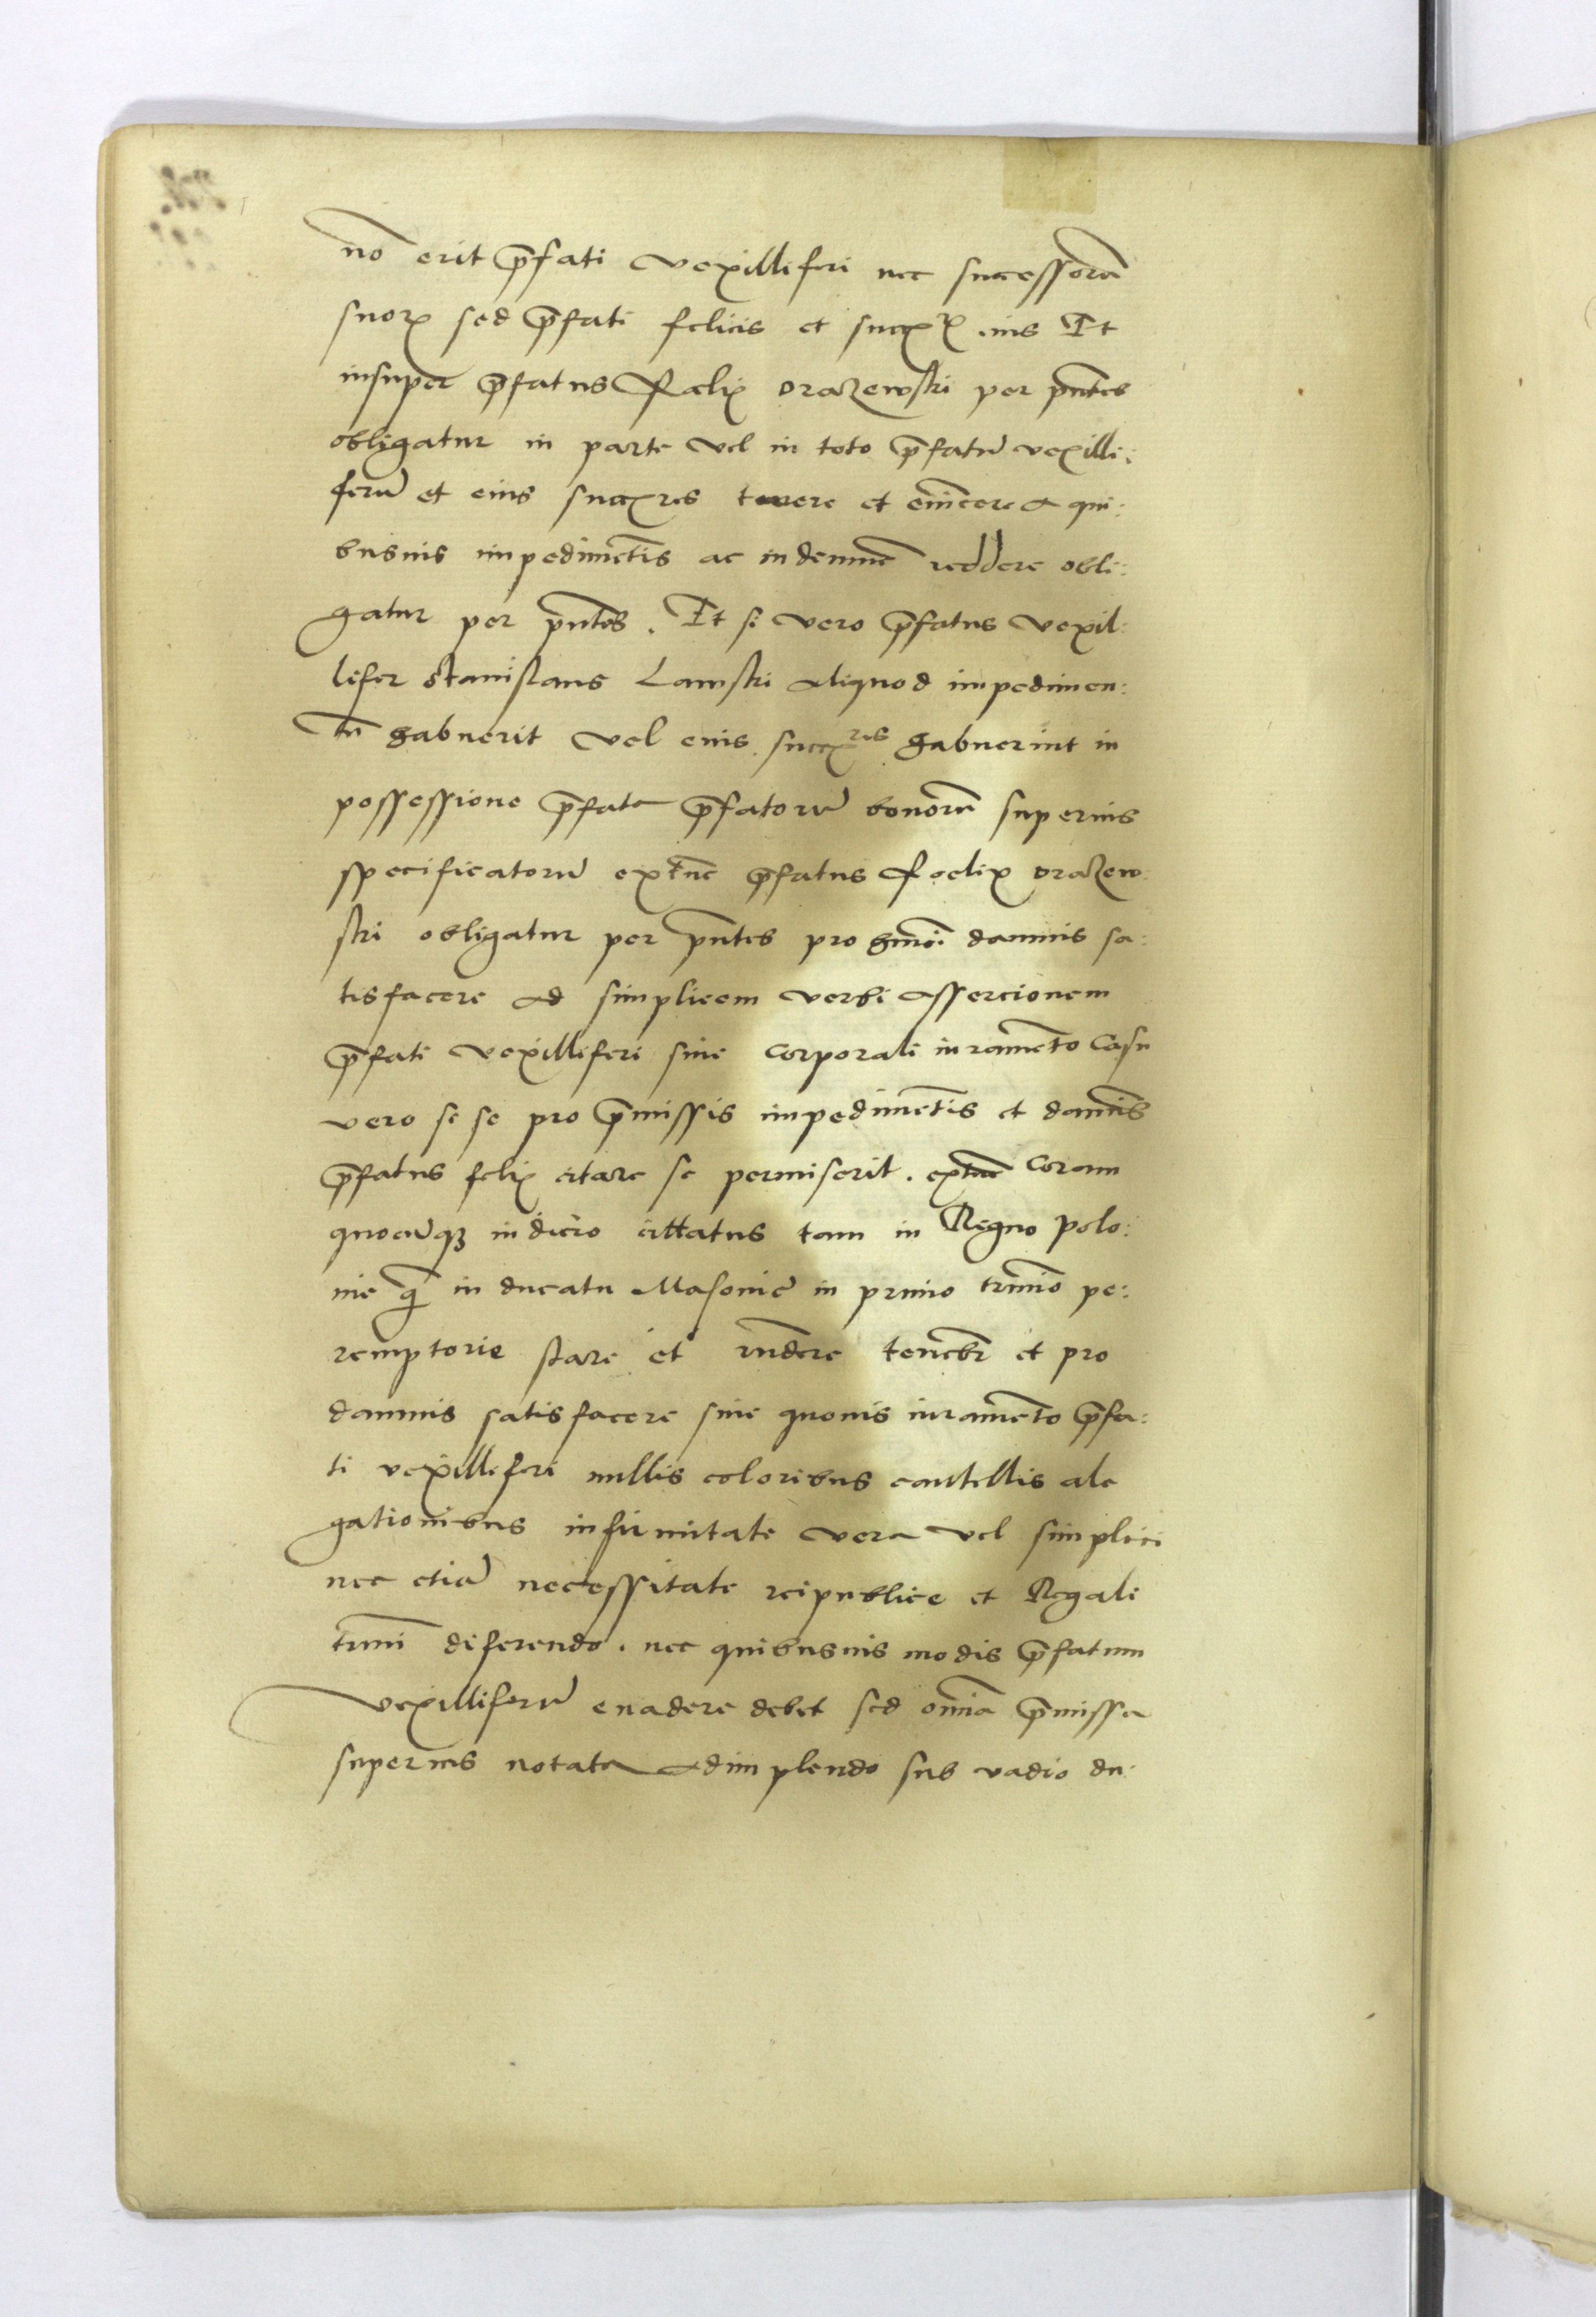 nō erit p̄fati vexilliferi nec successorū
suoꝝ sed p̄fati felicis et succꝝ eius Et
insuper p̄fatus Fœlix Drazewski per pn̄tes
obligatur in parte vel in toto p̄fatū vexilli:
ferū et eius succres tuere et eūīcere a qui:
busuis impedimētis ac indemnē reddere obli:
gatur per pn̄tes. Et si vero p̄fatus vexil:
lifer Stanislaus Lawski aliquod impedimen:
tū habuerit vel eius succres habuerint in
possessione p̄fata p̄fatorū bonorū superius
specificatorū extūc p̄fatus Foelix Drazew:
ski obligatur per pn̄tes pro hmōi damnis sa:
tisfacere ad simplicem verbi assercionem
p̄fati vexilliferi sine corporali iuramēto Casu
vero si se pro p̄missis impedimētis et damnis
p̄fatus felix citare se permiserit. extūc coram
quocūqꝫ iudicio cittatus tam in Regno polo:
nie q̄ in ducatu Masouiē in primo trmīo pe:
remptorie stare et rn̄dere tenebr̄ et pro
damnis satisfacere sine quouis iuramēto p̄fa:
ti vexilliferi nullis coloribus cautellis ale
gationibus infirmitate vera vel simplici
nec etiā necessitate reipublice et Regali
trmī diferendo. nec quibusuis modis p̄fatum
vexilliferū euadere debet sed omīa p̄missa
superius notata adimplendo sub vadio du: